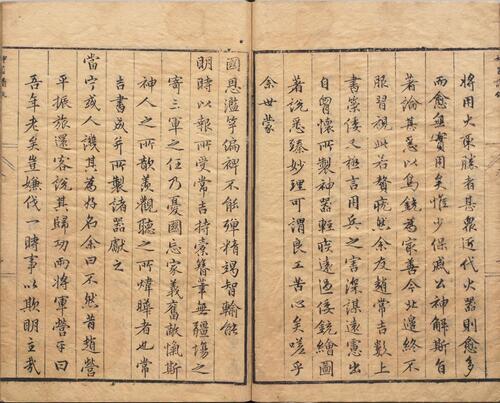 將用火取勝者甚衆近代火器則愈多
而愈無實用矣惟少保戚公神解斯旨
著論甚悉以鳥銃為最善今北邊終不
服習視此若贅然余友趙常吉數上
書策倭又極言用兵之害深謀遠慮出
自胷懷所製神器輕遠過倭銃繪圖
著說悉臻妙理可謂良工苦心矣嗟乎
余世蒙
國恩濫竽偏裨不能殫精竭智輸能
明時以報所受常吉持橐簪筆無疆埸之
寄三軍之任乃憂國忘家義奮敵愾斯
神人之所歆羨觀聽之所煒曄者也常
吉書成并所製諸器獻之
當宁或人譏其為好名余曰不然昔趙營
平振旅還客說其歸功兩將軍營平曰
吾年老矣豈嫌伐一時事以欺明主哉